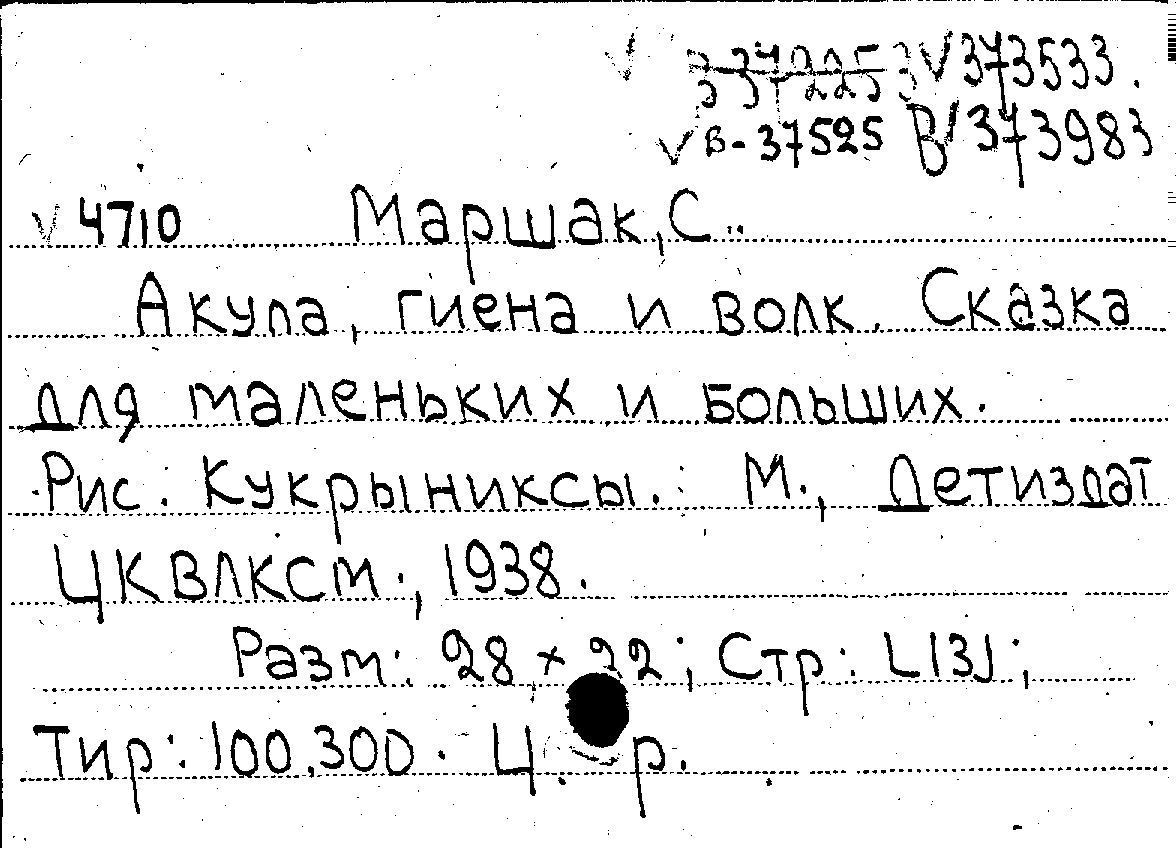 √ 3372253 √373533.
√ В-37525 В√373983
√ 4710 Маршак, С..
Акула, гиена и волк. Сказка
для маленьких и больших.
Рис. Кукрыниксы.: М., Детиздат
ЦКВЛКСМ., 1938.
Разм: 28 × 22; Стр: [13];
Тир: 100.300. Ц. р.